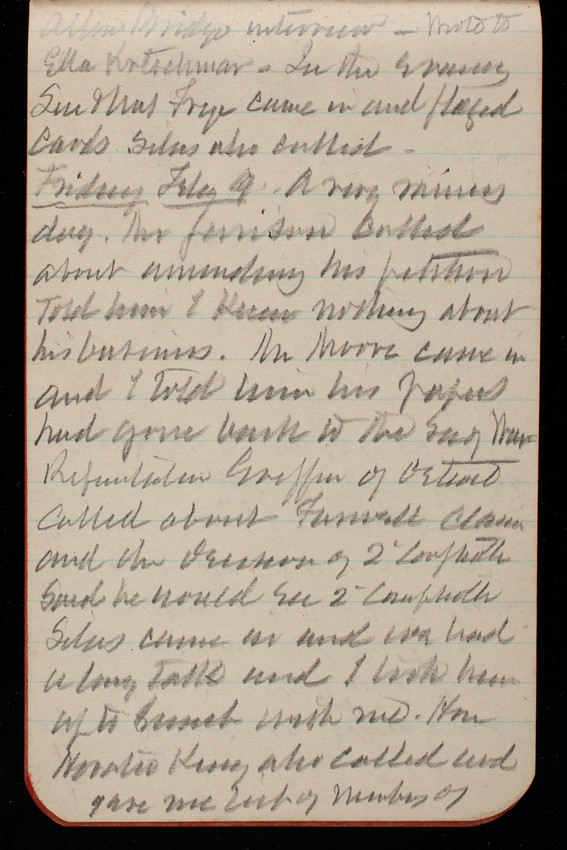 Allen Bridge interview - Wrote to
Ella Kotschmar - In the evening
Sue & Mrs Frye came in and played
cards Silas also called -
Friday Feby 9. A very rainy
day. Mr Jerrison called
about amending his petition
Told him I knew nothing about
his business. Mr Moore came in
and I told him his papers
had gone back to the Secy War
Griffin of Detroit
called about Farwell claim
and the decision of 2d Comptroller
Said he would see 2d Comptroller
Silas came in and we had
a long talk and I took him
up to lunch with me. Hon
Horatio King also called and
gave me list of Members of